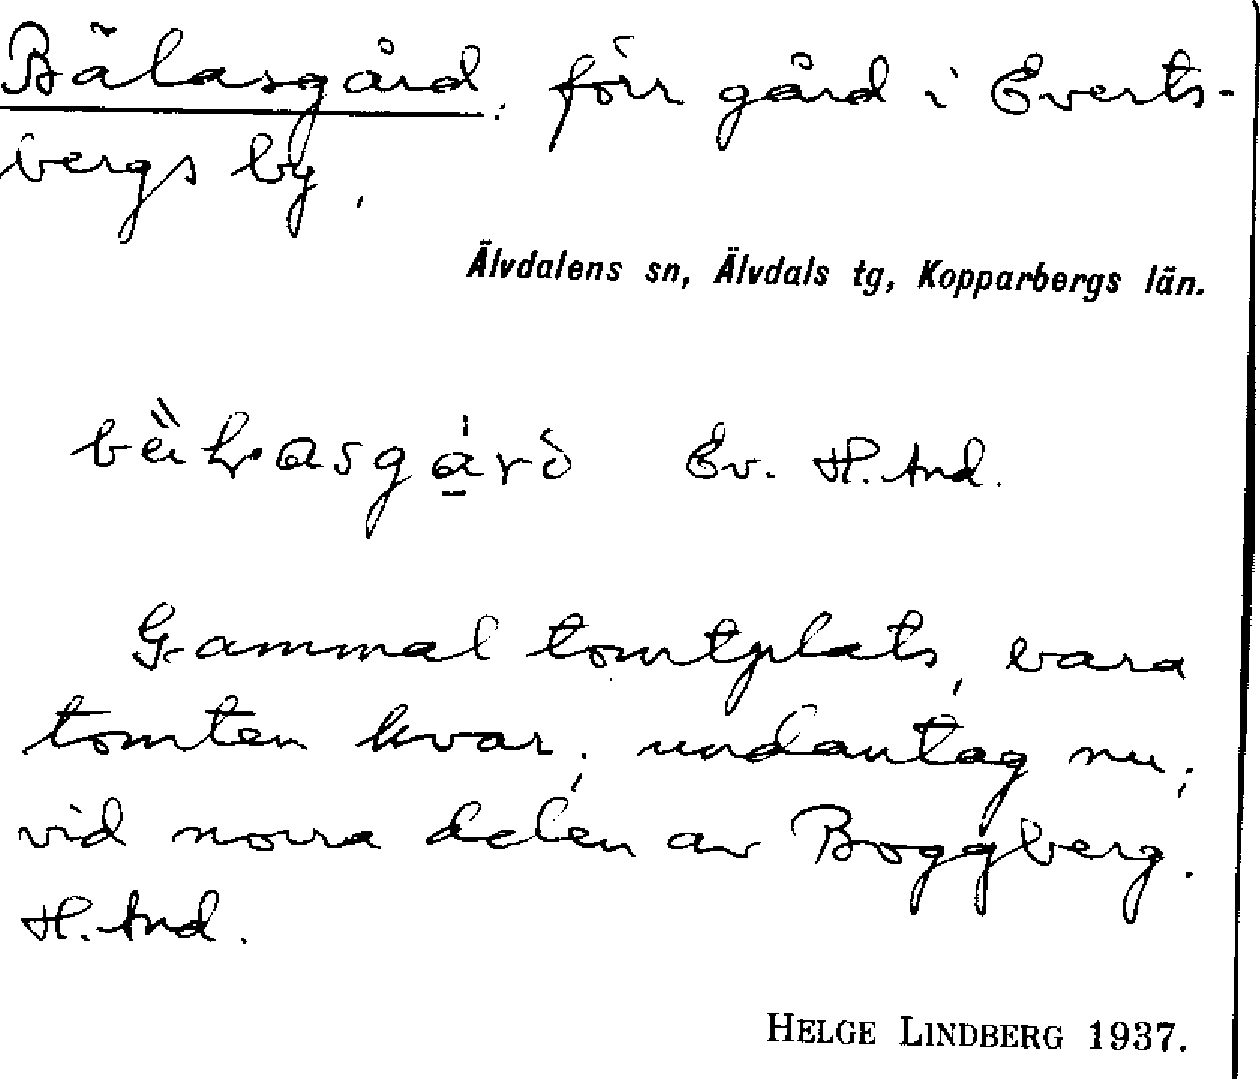 Bälasgård: förr gård i Everts-
bergs by.
Älvdalens sn, Älvdals tg, Kopparbergs län.
Ev. H. And.
Gammal tomtplats, bara
tomten kvar; undantag nu;
vid norra delen av Boggberg.
H. And.
HELGE LINDBERG 1937.